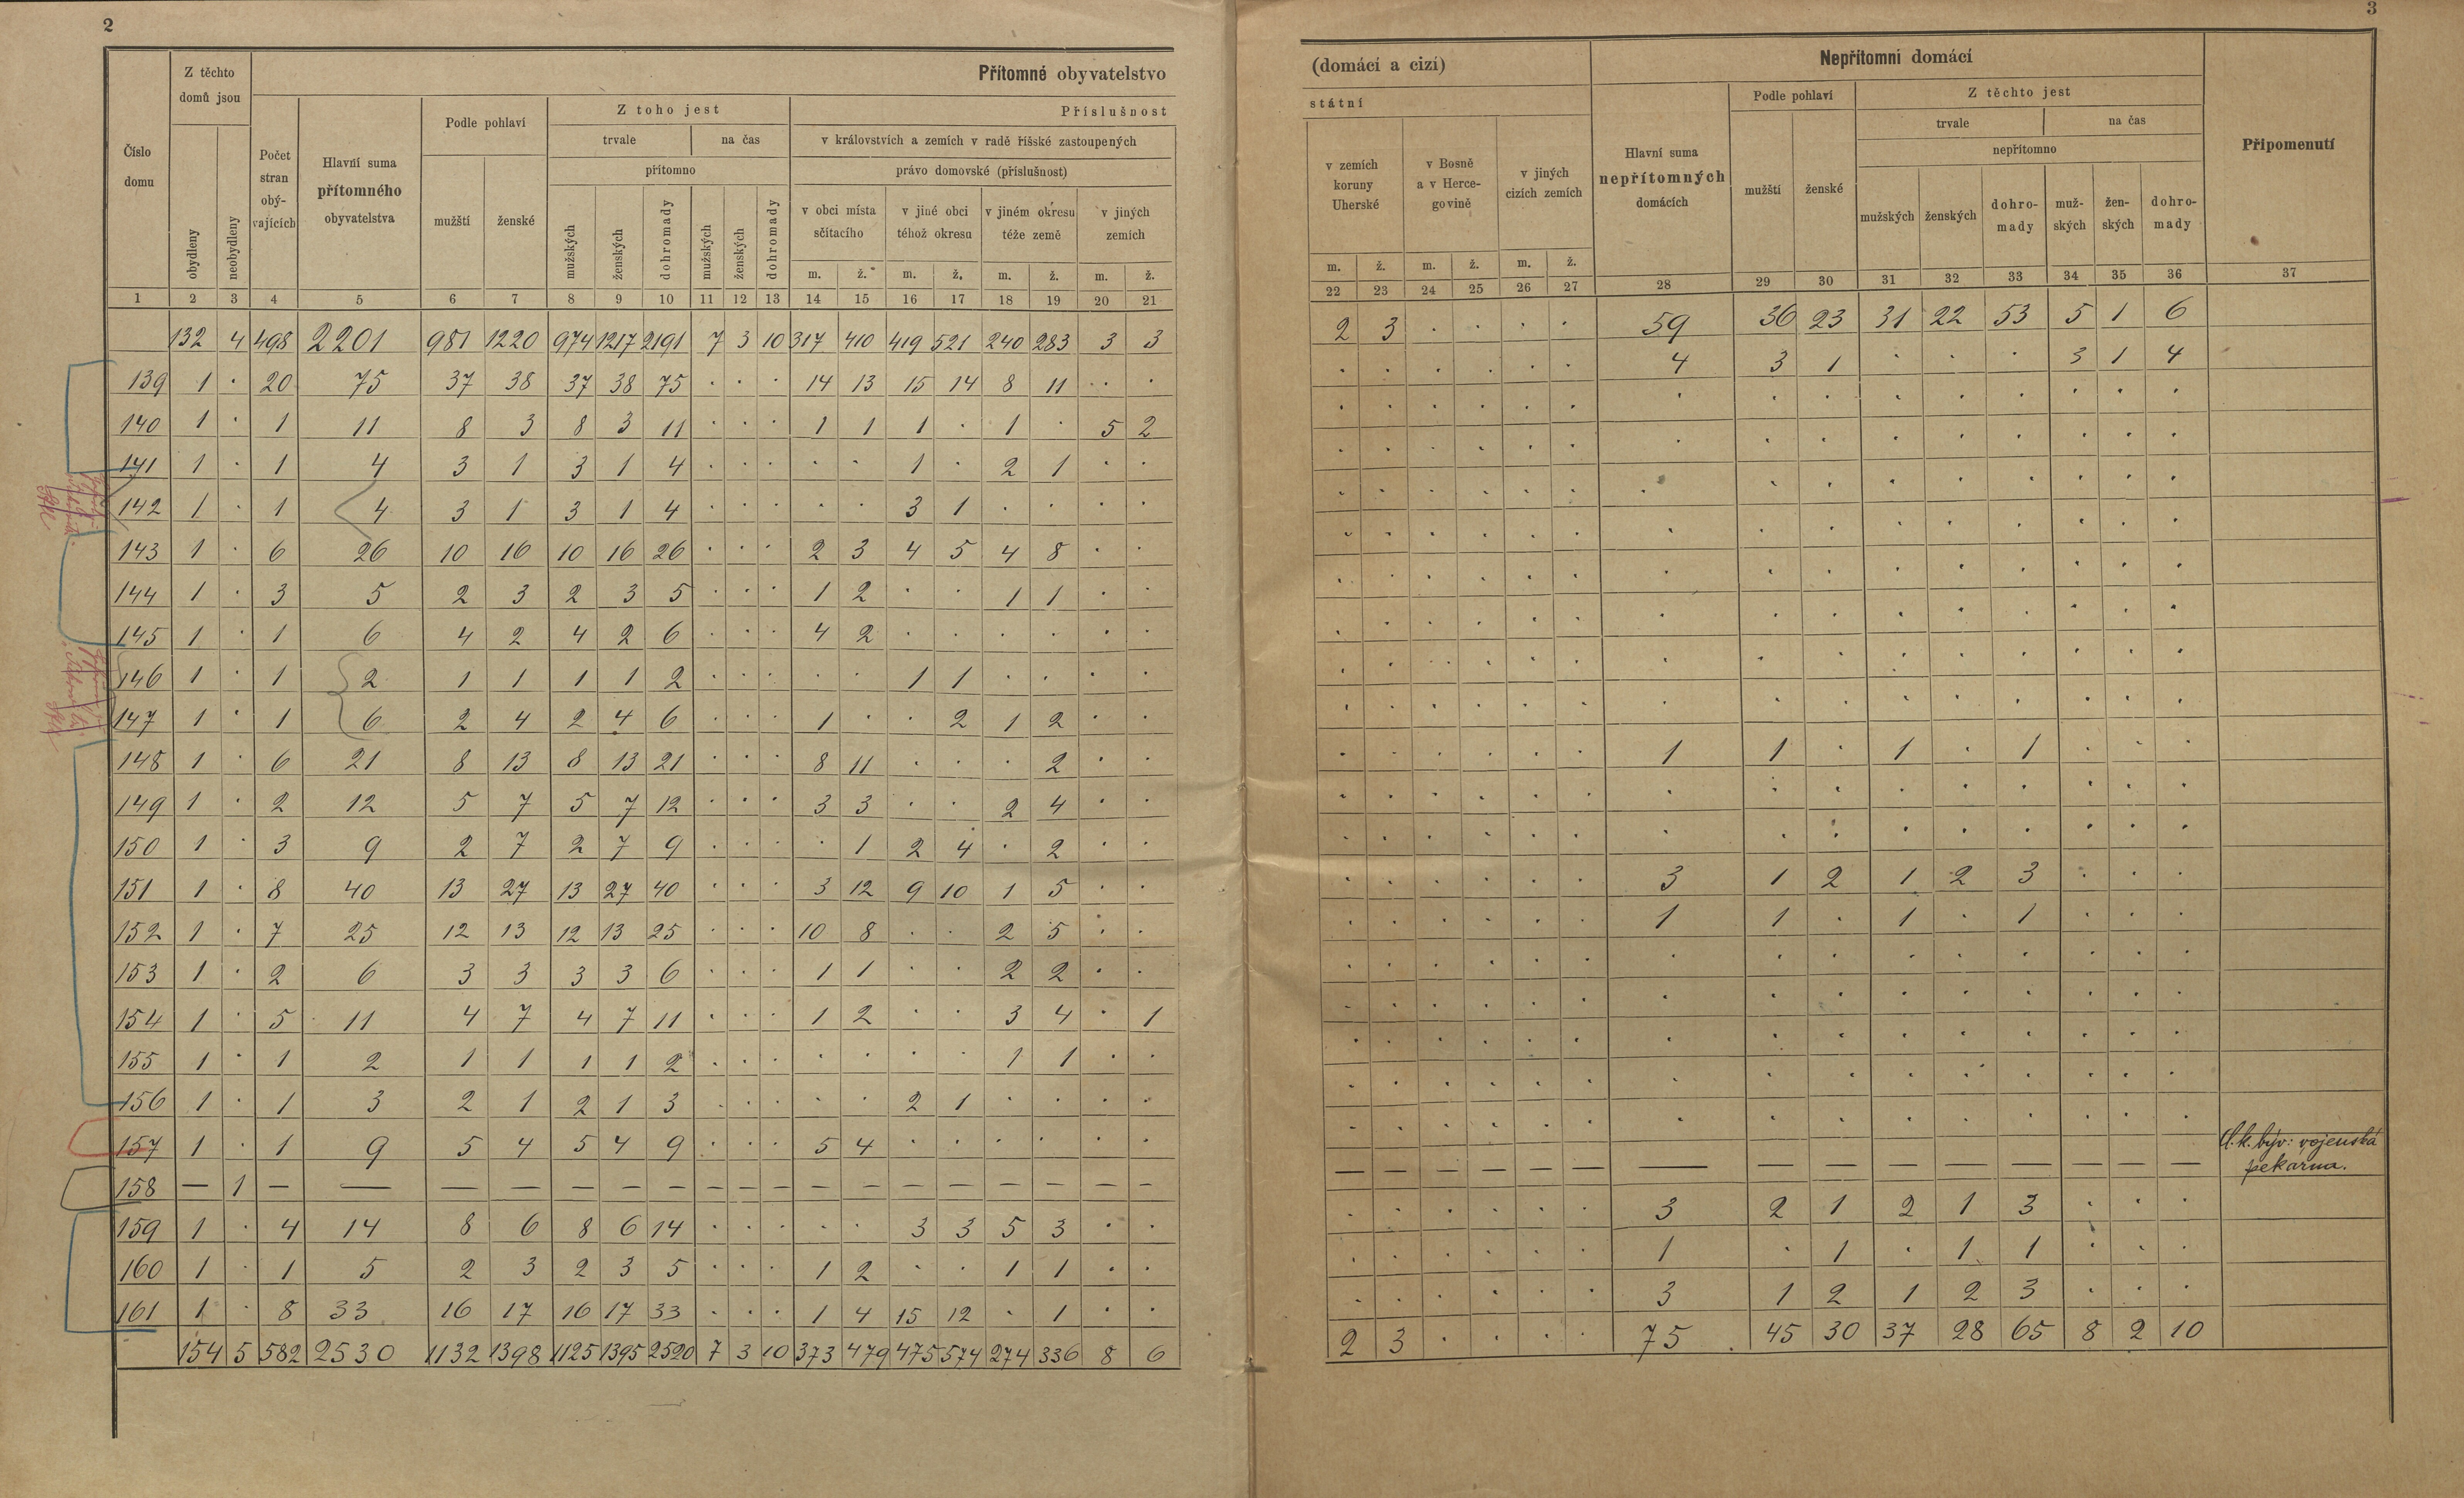 2
3
Číslo domu
Z těchto domů jsou
obydleny
neobydleny
Počet stran obý-vajících
Přítomné obyvatelstvo
Hlavní suma přítomného obyvatelstva
Podle pohlaví
mužští
ženské
Z toho jest
trvale
na čas
přítomno
mužských
ženských
dohromady
mužských
ženských
dohromady
Příslušnost
v královstvích a zemích v radě říšské zastoupených
právo domovské (příslušnost)
v obci místa sčítacího
v jiné obci téhož okresu
v jiném okresu téže země
v jiných zemích
m. ž. m. ž. m. ž. m. ž.
1 2 3 4 5 6 7 8 9 10 11 12 13 14 15 16 17 18 19 20 21
132 4 498 2201 981 1220 974 1217 2191 7 3 10 317 410 419 521 240 283 3 3
139 1 · 20 75 37 38 37 38 75 · · · 14 13 15 14 8 11 · ·
140 1 · 1 11 8 3 8 3 11 · · · 1 1 1 · 1 · 5 2
141 1 · 1 4 3 1 3 1 4 · · · · · 1 · 2 1 · ·
142 1 · 1 4 3 1 3 1 4 · · · · · 3 1 · · · ·
143 1 · 6 26 10 16 10 16 26 · · · 2 3 4 5 4 8 · ·
144 1 · 3 5 2 3 2 3 5 · · · 1 2 · · 1 1 · ·
145 1 · 1 6 4 2 4 2 6 · · · 4 2 · · · · · ·
146 1 · 1 2 1 1 1 1 2 · · · · · 1 1 · · · ·
147 1 · 1 6 2 4 2 4 6 · · · 1 · · 2 1 2 · ·
148 1 · 6 21 8 13 8 13 21 · · · 8 11 · · · 2 · ·
149 1 · 2 12 5 7 5 7 12 · · · 3 3 · · 2 4 · ·
150 1 · 3 9 2 7 2 7 9 · · · · 1 2 4 · 2 · ·
151 1 · 8 40 13 27 13 27 40 · · · 3 12 9 10 1 5 · ·
152 1 · 7 25 12 13 12 13 25 · · · 10 8 · · 2 5 · ·
153 1 · 2 6 3 3 3 3 6 · · · 1 1 · · 2 2 · ·
154 1 · 5 11 4 7 4 7 11 · · · 1 2 · · 3 4 · 1
155 1 · 1 2 1 1 1 1 2 · · · · · · · 1 1 · ·
156 1 · 1 3 2 1 2 1 3 · · · · · 2 1 · · · ·
157 1 · 1 9 5 4 5 4 9 · · · 5 4 · · · · · ·
158 — 1 — — — — — — — — — — — — — — — — — —
159 1 · 4 14 8 6 8 6 14 · · · · · 3 3 5 3 · ·
160 1 · 1 5 2 3 2 3 5 · · · 1 2 · · 1 1 · ·
161 1 · 8 33 16 17 16 17 33 · · · 1 4 15 12 · 1 · ·
154 5 582 2530 1132 1398 1125 1395 2520 7 3 10 373 479 475 574 274 336 8 6
(domácí a cizí)
státní
v zemích koruny Uherské
v Bosně a v Herce-govině
v jiných cizích zemích
Nepřítomni domácí
Hlavní suma nepřítomných domácích
Podle pohlaví
mužští
ženské
Z těchto jest
trvale
na čas
nepřítomno
mužských
ženských
dohro-mady
muž-ských
žen-ských
dohro-mady
Připomenutí
m. ž. m. ž. m. ž.
22 23 24 25 26 27 28 29 30 31 32 33 34 35 36 37
2 3 · · · · 59 36 23 31 22 53 5 1 6
· · · · · · 4 3 1 · · · 3 1 4
· · · · · · · · · · · · · · ·
· · · · · · · · · · · · · · ·
· · · · · · · · · · · · · · ·
· · · · · · · · · · · · · · ·
· · · · · · · · · · · · · · ·
· · · · · · · · · · · · · · ·
· · · · · · · · · · · · · · ·
· · · · · · · · · · · · · · ·
· · · · · · 1 1 · 1 · 1 · · ·
· · · · · · · · · · · · · · ·
· · · · · · · · · · · · · · ·
· · · · · · 3 1 2 1 2 3 · · ·
· · · · · · 1 1 · 1 · 1 · · ·
· · · · · · · · · · · · · · ·
· · · · · · · · · · · · · · ·
· · · · · · · · · · · · · · ·
· · · · · · · · · · · · · · ·
· · · · · · · · · · · · · · ·
— — — — — — — — — — — — — — — býv: vojenská
pekárna.
· · · · · · 3 2 1 2 1 3 · · ·
· · · · · · 1 · 1 · 1 1 · · ·
· · · · · · 3 1 2 1 2 3 · · ·
2 3 · · · · 75 45 30 37 28 65 8 2 10